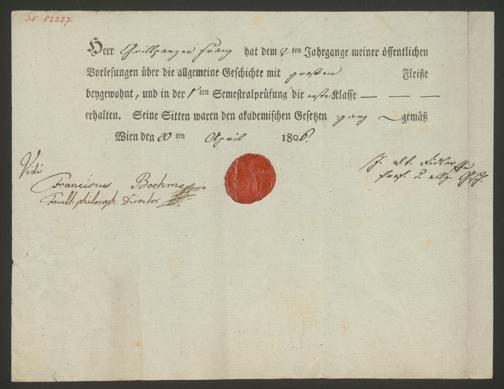 Herr Grillparzer Franz hat dem 2ten Jahrgange meiner öffentlichen
Vorlesungen über die allgemeine Geschichte mit großem Fleiße
beygewohnt, und in der 1ten Semestralprüfung die erste Klasse — — —
erhalten. Seine Sitten waren den akademischen Gesetzen ganz gemäß
Wien den ten April 1806.
Vidi
Franciscus Boehm
philosoph. Director
Prof. d. allg. Gesch.